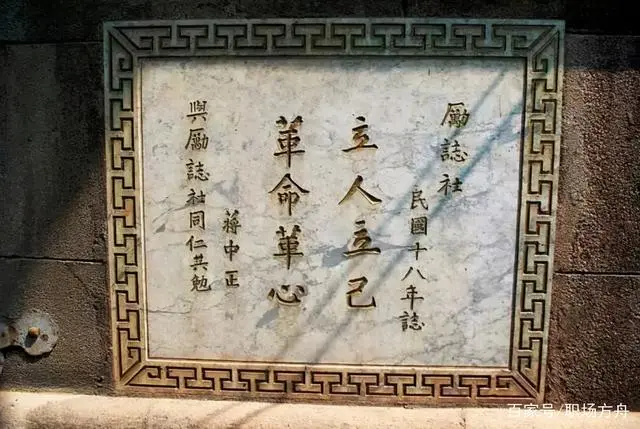 厲誌社
民國十八年誌
立人立己
革命革心
蔣中正
與厲誌社同仁共勉
百家号/职场方舟